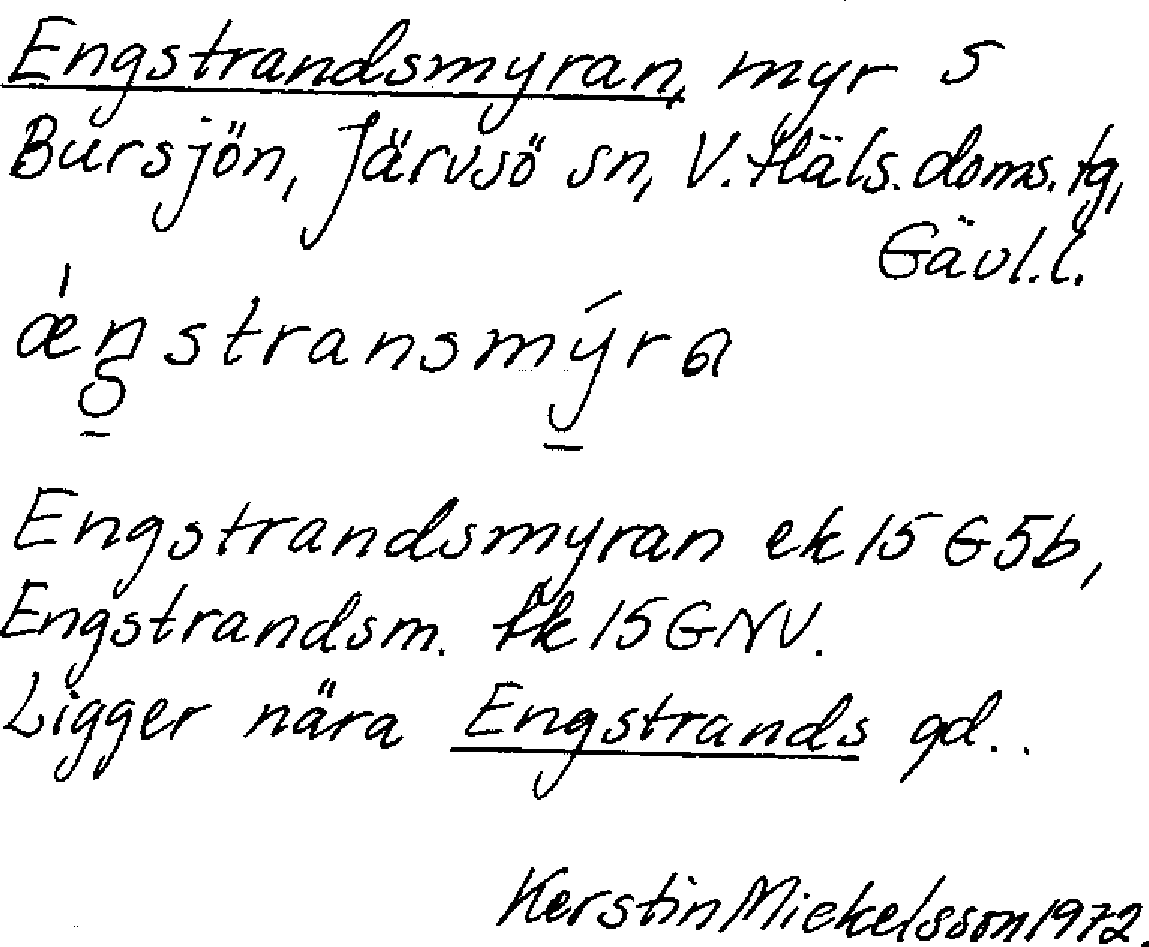 Engstrandsmyran, myr S
Bursjön, Järvsö sn, V. Häls. doms. tg,
Gävl.l.
ǽŋstransmýra
Engstrandsmyran ek 15 G5b,
Engstrandsm. tk 15 G NV.
Ligger nära Engstrands gd..
Kerstin Mickelsson 1972.